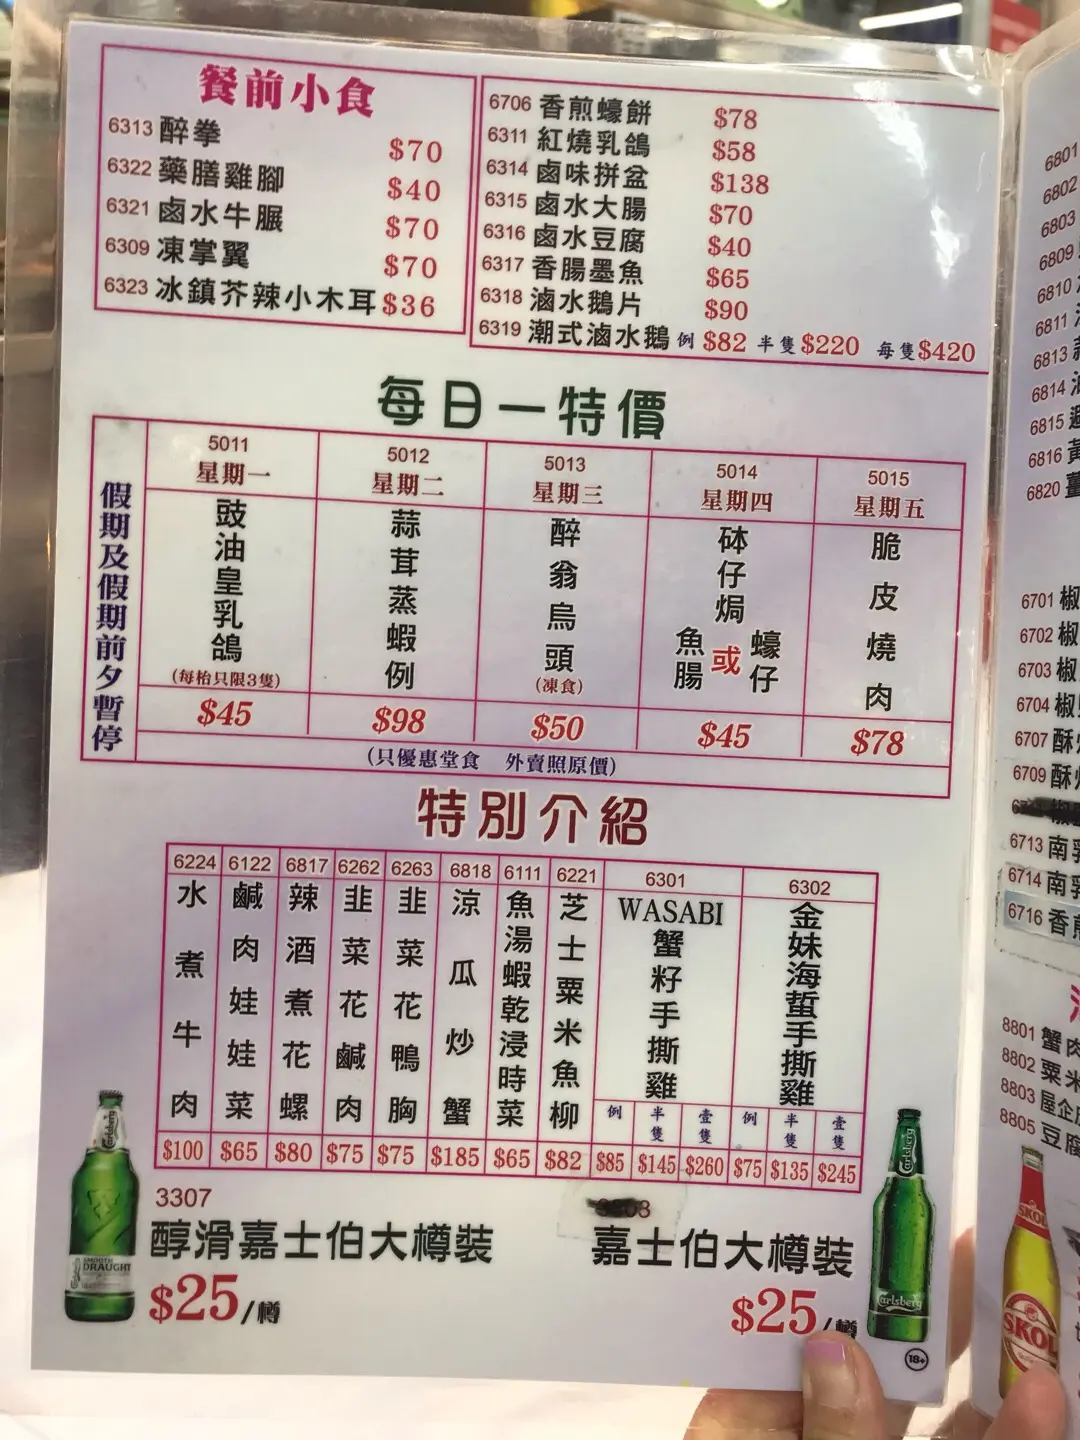 餐前小食
6313 醉拳 $70
6322 藥膳雞腳 $40
6321 鹵水牛𦟌 $70
6309 凍掌翼 $70
6323 冰鎮芥辣小木耳 $36
6706 香煎蠔餅 $78
6311 紅燒乳鴿 $58
6314 鹵味拼盆 $138
6315 鹵水大腸 $70
6316 鹵水豆腐 $40
6317 香腸墨魚 $65
6318 滷水鵝片 $90
6319 潮式滷水鵝 例 $82 半隻 $220 每隻 $420
每日一特價
假期及假期前夕暫停
5011 星期一 豉油皇乳鴿 (每枱只限3隻) $45
5012 星期二 蒜茸蒸蝦 例 $98
5013 星期三 醉翁烏頭 (凍食) $50
5014 星期四 砵仔焗魚腸或蠔仔 $45
5015 星期五 脆皮燒肉 $78
(只優惠堂食 外賣照原價)
特別介紹
6224 水煮牛肉 $100
6122 鹹肉娃娃菜 $65
6817 辣酒煮花螺 $80
6262 韭菜花鹹肉 $75
6263 韭菜花鴨胸 $75
6818 涼瓜炒蟹 $185
6111 魚湯蝦乾浸時菜 $65
6221 芝士粟米魚柳 $82
6301 WASABI蟹籽手撕雞 例 $85 半隻 $145 壹隻 $260
6302 金妹海蜇手撕雞 例 $75 半隻 $135 壹隻 $245
3307
醇滑嘉士伯大樽裝
$25/樽
嘉士伯大樽裝
$25/樽
Carlsberg
SMOOTH
DRAUGHT
Carlsberg
Carlsberg
18+
6801
6802
6803
6809
6810
6811
6813
6814
6815
6816 黃
6820
6701 椒
6702 椒
6703 椒
6704 椒
6707 酥
6709 酥
6713 南乳
6714 南乳
6716 香煎
8801 蟹肉
8802 粟米
8803 屋企
8805 豆腐
SKOL
SKOL